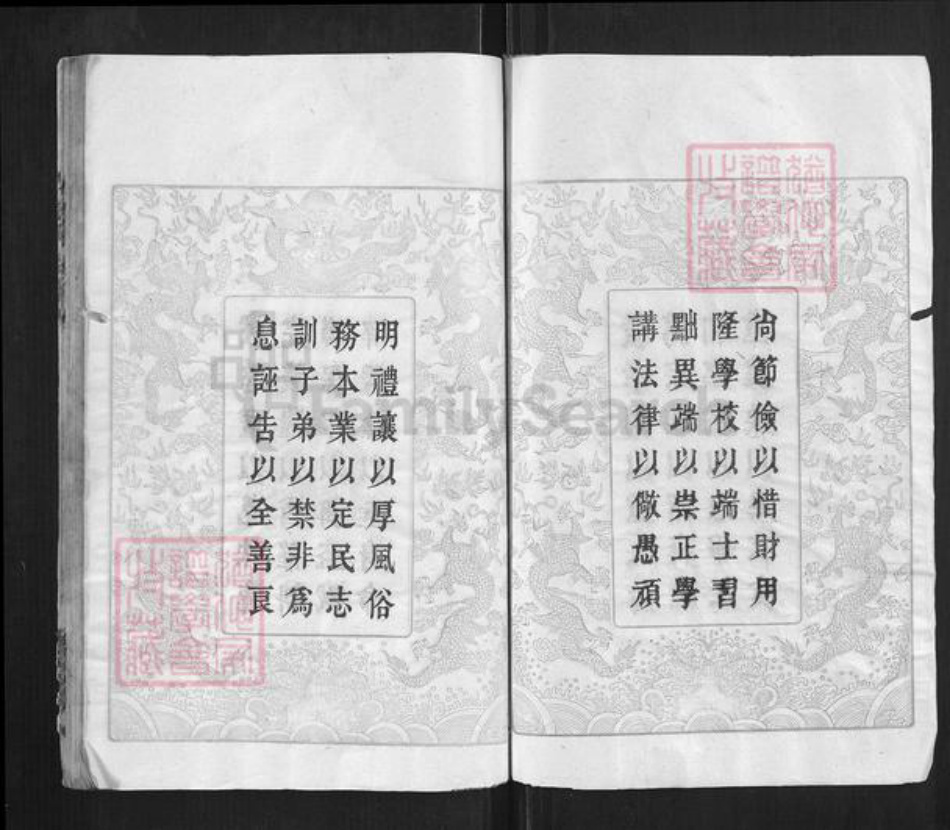 尙節儉以惜財用
隆學校以端士習
黜異端以崇正學
講法律以儆愚頑
明禮讓以厚風俗
務本業以定民志
訓子弟以禁非爲
息誣告以全善良
FamilySearch